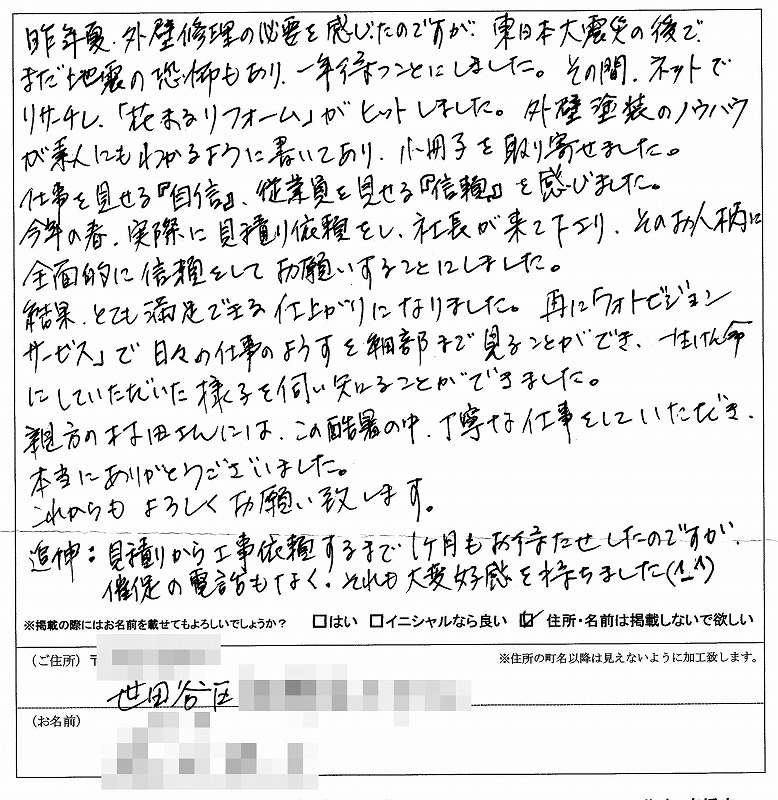 昨年夏、外壁修理の必要を感じたのですが、東日本大震災の後で
まだ地震の恐怖もあり、一年待つことにしました。その間、ネットで
リサーチし、「花まるリフォーム」がヒットしました。外壁塗装のノウハウ
が素人にもわかるように書いてあり、小冊子を取り寄せました。
仕事を見せる『自信』、従業員を見せる『信頼』を感じました。
今年の春、実際に見積り依頼をし、社長が来て下さり、そのお人柄に
全面的に信頼をしてお願いすることにしました。
結果、とても満足できる仕上がりになりました。再に「フォトビジョン
サービス」で日々の仕事のようすを細部まで見ることができ、一生けん命
にしていただいた様子を伺い知ることができました。
親方の村田さんには、この酷暑の中、丁寧な仕事をしていただき、
本当にありがとうございました。
これからもよろしくお願い致します。
追伸：見積りから工事依頼するまで1ヶ月もお待たせしたのですが、
催促の電話もなく、それも大変好感を持ちました(^_^)
※掲載の際にはお名前を載せてもよろしいでしょうか？ □はい □イニシャルなら良い ☑住所・名前は掲載しないで欲しい
（ご住所）〒 ※住所の町名以降は見えないように加工致します。
世田谷区
（お名前）